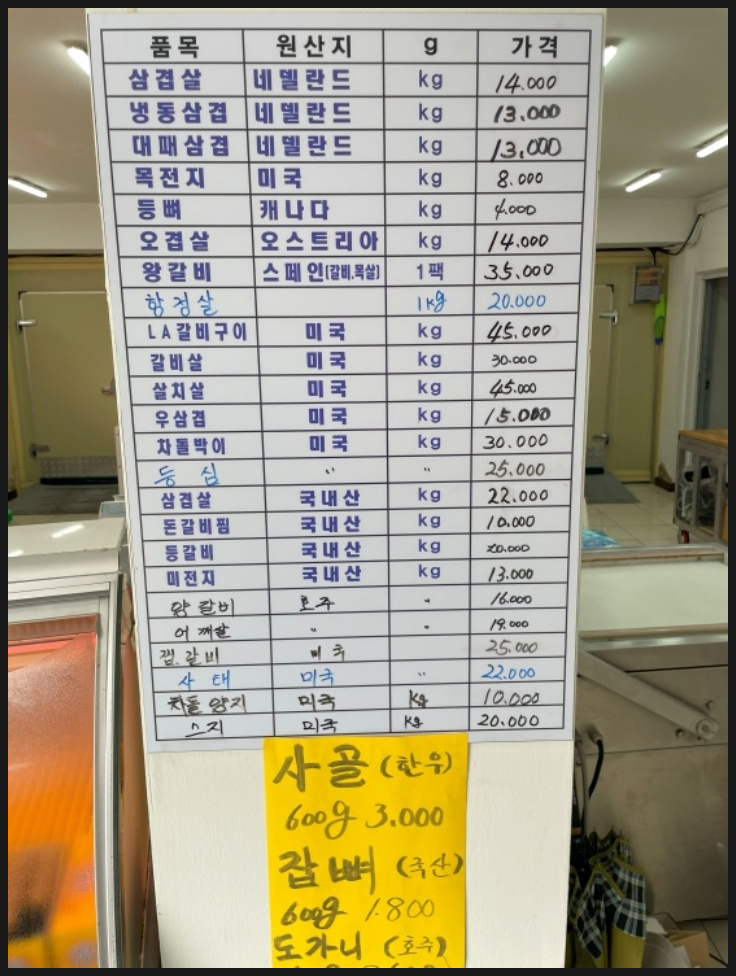 품목 원산지 g 가격
삼겹살 네델란드 kg 14.000
냉동삼겹 네델란드 kg 13.000
대패삼겹 네델란드 kg 13.000
목전지 미국 kg 8.000
등뼈 캐나다 kg 4.000
오겹살 오스트리아 kg 14.000
왕갈비 스페인(갈비.목살) 1팩 35.000
항정살 1kg 20.000
LA갈비구이 미국 kg 45.000
갈비살 미국 kg 30.000
살치살 미국 kg 45.000
우삼겹 미국 kg 15.000
차돌박이 미국 kg 30.000
등심 〃 〃 25.000
삼겹살 국내산 kg 22.000
돈갈비찜 국내산 kg 10.000
등갈비 국내산 kg 20.000
미전지 국내산 kg 13.000
양갈비 호주 〃 16.000
어깨살 〃 〃 19.000
찜.갈비 미국 25.000
사태 미국 〃 22.000
차돌양지 미국 Kg 10.000
스지 미국 Kg 20.000
사골 (한우)
600g 3.000
잡뼈 (국산)
600g 1.800
도가니 (호주)